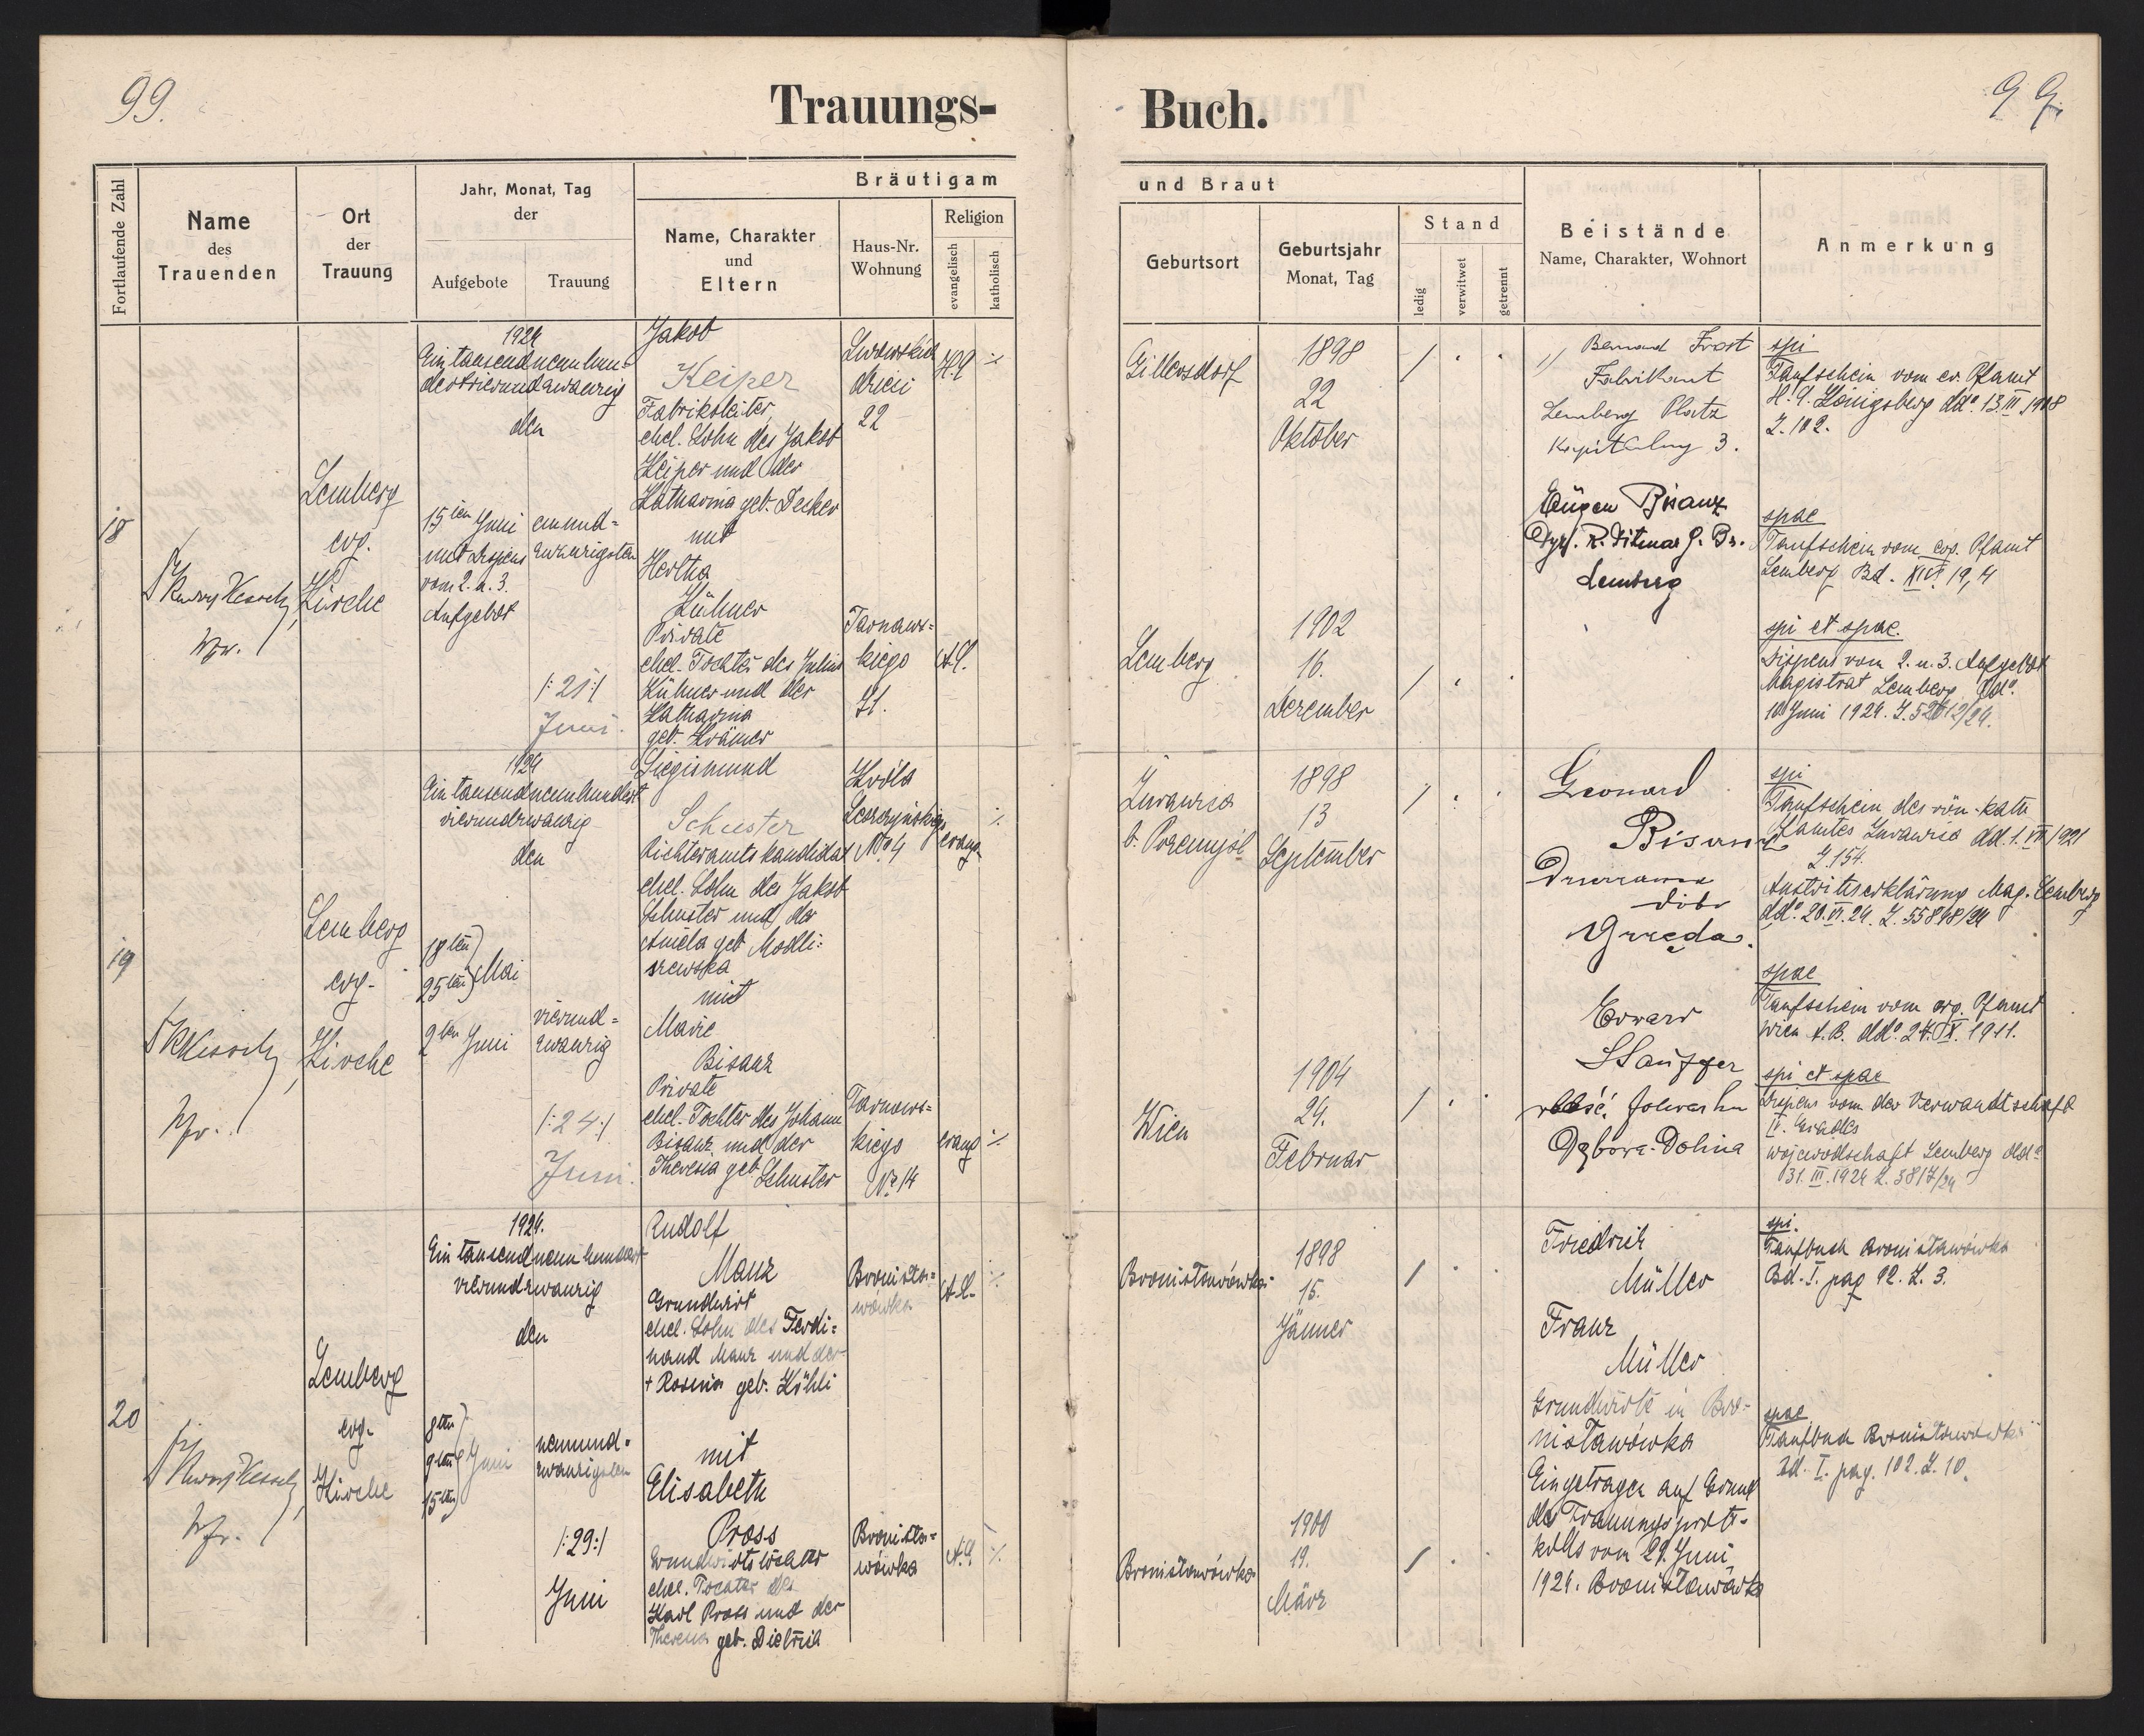 99.
Trauungs-
Buch.
99.
Fortlaufende Zahl
Name
des
Trauenden
Ort
der
Trauung
Jahr, Monat, Tag
der
Aufgebote
Trauung
Bräutigam
Name, Charakter
und
Eltern
Haus-Nr.
Wohnung
Religion
evangelisch
katholisch
und Braut
Geburtsort
Geburtsjahr
Monat, Tag
Stand
ledig
verwitwet
getrennt
Beistände
Name, Charakter, Wohnort
Anmerkung
18
Lemberg
evg.
Kirche
1924
Ein tausend neunhun-
dertvierundzwanzig
den
15ten Juni
mit Dispens
vom 2. u. 3.
Aufgebot
einund=
zwanzigsten
/:21:/
Juni.
Jakob
Keiper
Fabriksleiter
ehel. Sohn des Jakob
Keiper und der
Katharina geb. Decker
mit
Hertha
Kühner
Private
ehel. Tochter des Julius
Kühner und der
Katharina
geb. Krämer
22
H.C.
Tarnaws=
kiego
A.C.
Gillersdorf
1898
22
Oktober
Lemberg
1902
16.
Dezember
1/ Bernard Frost
Fabrikant
Lemberg Platz
Kapitulny 3.
Eugen Bisanz
Dyr. R. Ditmar G. Br.
Lemberg
spi
Taufschein vom ev. Pfamt
H.C. Königsberg ddo. 13.III.1908
Z. 102.
spae
Taufschein vom evg. Pfamt
Lemberg Bd. XIV 19,4
spi et spae.
Dispens vom 2. u. 3. Aufgebot
Magistrat Lemberg ddo.
10 Juni 1924. Z. 52612/24.
19
Lemberg
evg.
Kirche
1924
Ein tausend neunhundert
vierundzwanzig
den
18ten
25ten Mai
2ten Juni
vierund=
zwanzig
/:24:/
Juni.
Siegismund
Schuster
Richteramtskandidat
ehel. Sohn des Jakob
Schuster und der
Aniela geb. Modli=
szewska
mit
Marie
Bisanz
Private
ehel. Tochter des Johann
Bisanz und der
Theresa geb. Schuster
Króla
No. 4
evang
Tarnaws=
kiego
No. 14
evang
Żurawica
b. Przemyśl
1898
13
September
Wien
1904
24.
Februar
Leonard
Bisanz
dóbr
Grzęda.
Edward
Stauffer
Dąbora-Dolina
spi
Taufschein des röm-kath
Pfamtes Żurawica dd. 1.VII.1921
Z. 154.
Austrittserklärung Mag. Lemberg
ddo. 20.VI.24. Z. 55848/24
spae
Taufschein vom evg. Pfamt
Wien A.B. ddo. 24.IX.1911.
spi et spae
Dispens von der Verwandtschaft
IV. Grades
Wojewodschaft Lemberg ddo
31.III.1924 Z. 3817/24
20
Lemberg
evg.
Kirche
1924.
Ein tausend neunhundert
vierundzwanzig
den
8ten
9ten Juni
15ten
neunund=
zwanzigsten
/:29:/
Juni
Rudolf
Manz
Grundwirt
ehel. Sohn des Ferdi=
nand Manz und der
+ Rosina geb. Köhli
mit
Elisabeth
Pross
Grundwirtstochter
ehel. Tochter des
Karl Pross und der
Theresia geb. Dietrich
Bronisła=
wówka
A.C.
Bronisła=
wówka
A.C.
Bronisławówka
1898
15.
Jänner
Bronisławówka
1900
19.
März
Friedrich
Müller
Franz
Müller
Grundwirte in Bro-
nisławówka
Eingetragen auf Grund
des Trauungsproto-
kolls vom 29. Juni
1924. Bronisławówka
spi.
Taufbuch Bronisławówka
Bd. I. pag 92. Z. 3.
spae
Taufbuch Bronisławówka
Bd. I. pag. 102. Z. 10.